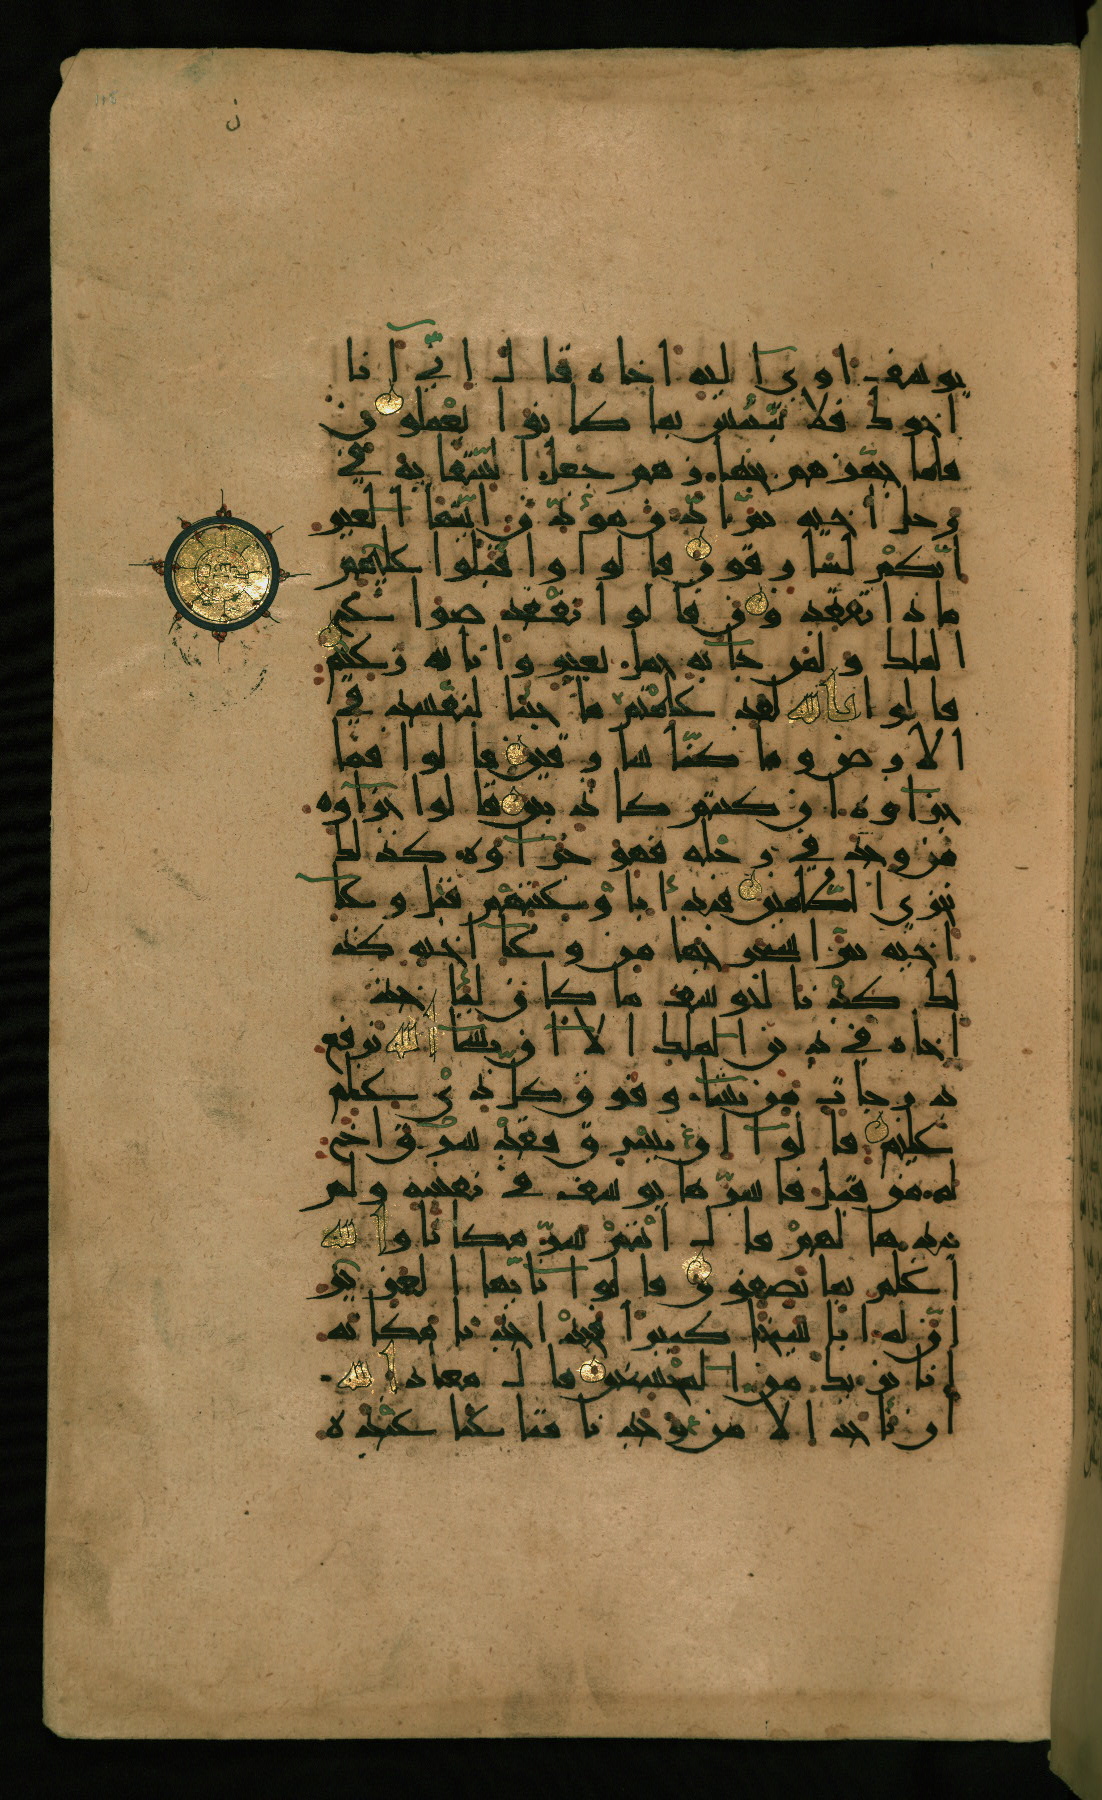 ن
يوسف اوى اليه اخاه قال اني انا
اخوك فلا تبتئس بما كانوا يعملون
فلما جهزهم بجهازهم جعل السقاية في
رحل اخيه ثم اذّن مؤذّن ايّتها العير
انّكم لسارقون قالوا واقبلوا عليهم
ماذا تفقدون قالوا نفقد صواع
الملك ولمن جآ به حمل بعير وانا به زعيم
قالوا تالله لقد علمتم ما جئنا لنفسد في
الارض وما كنّا سارقين قالوا فما
جزآوه ان كنتم كاذبين قالوا جزآوه
من وجد في رحله فهو جزآوه كذلك
نجزي الظّالمين فبدأ باوعيتهم قبل وعآ
اخيه ثمّ استخرجها من وعآ اخيه كذ
لك كدنا ليوسف ما كان ليأخذ
اخاه في دين الملك الا ان يشآ الله نرفع
درجات من نشآ وفوق كل ذي علم
عليم قالوا ان يسرق فقد سرق اخ
له من قبل فاسرّها يوسف في نفسه ولم
يبدها لهم قال انتم شرّ مكانا والله
اعلم بما تصفون قالوا يآايّها العزيز
انّ له ابا شيخا كبيرا فخذ احدنا مكانه
انا نريك من المحسنين قال معاذ الله
ان نأخذ الا من وجدنا متاعنا عنده